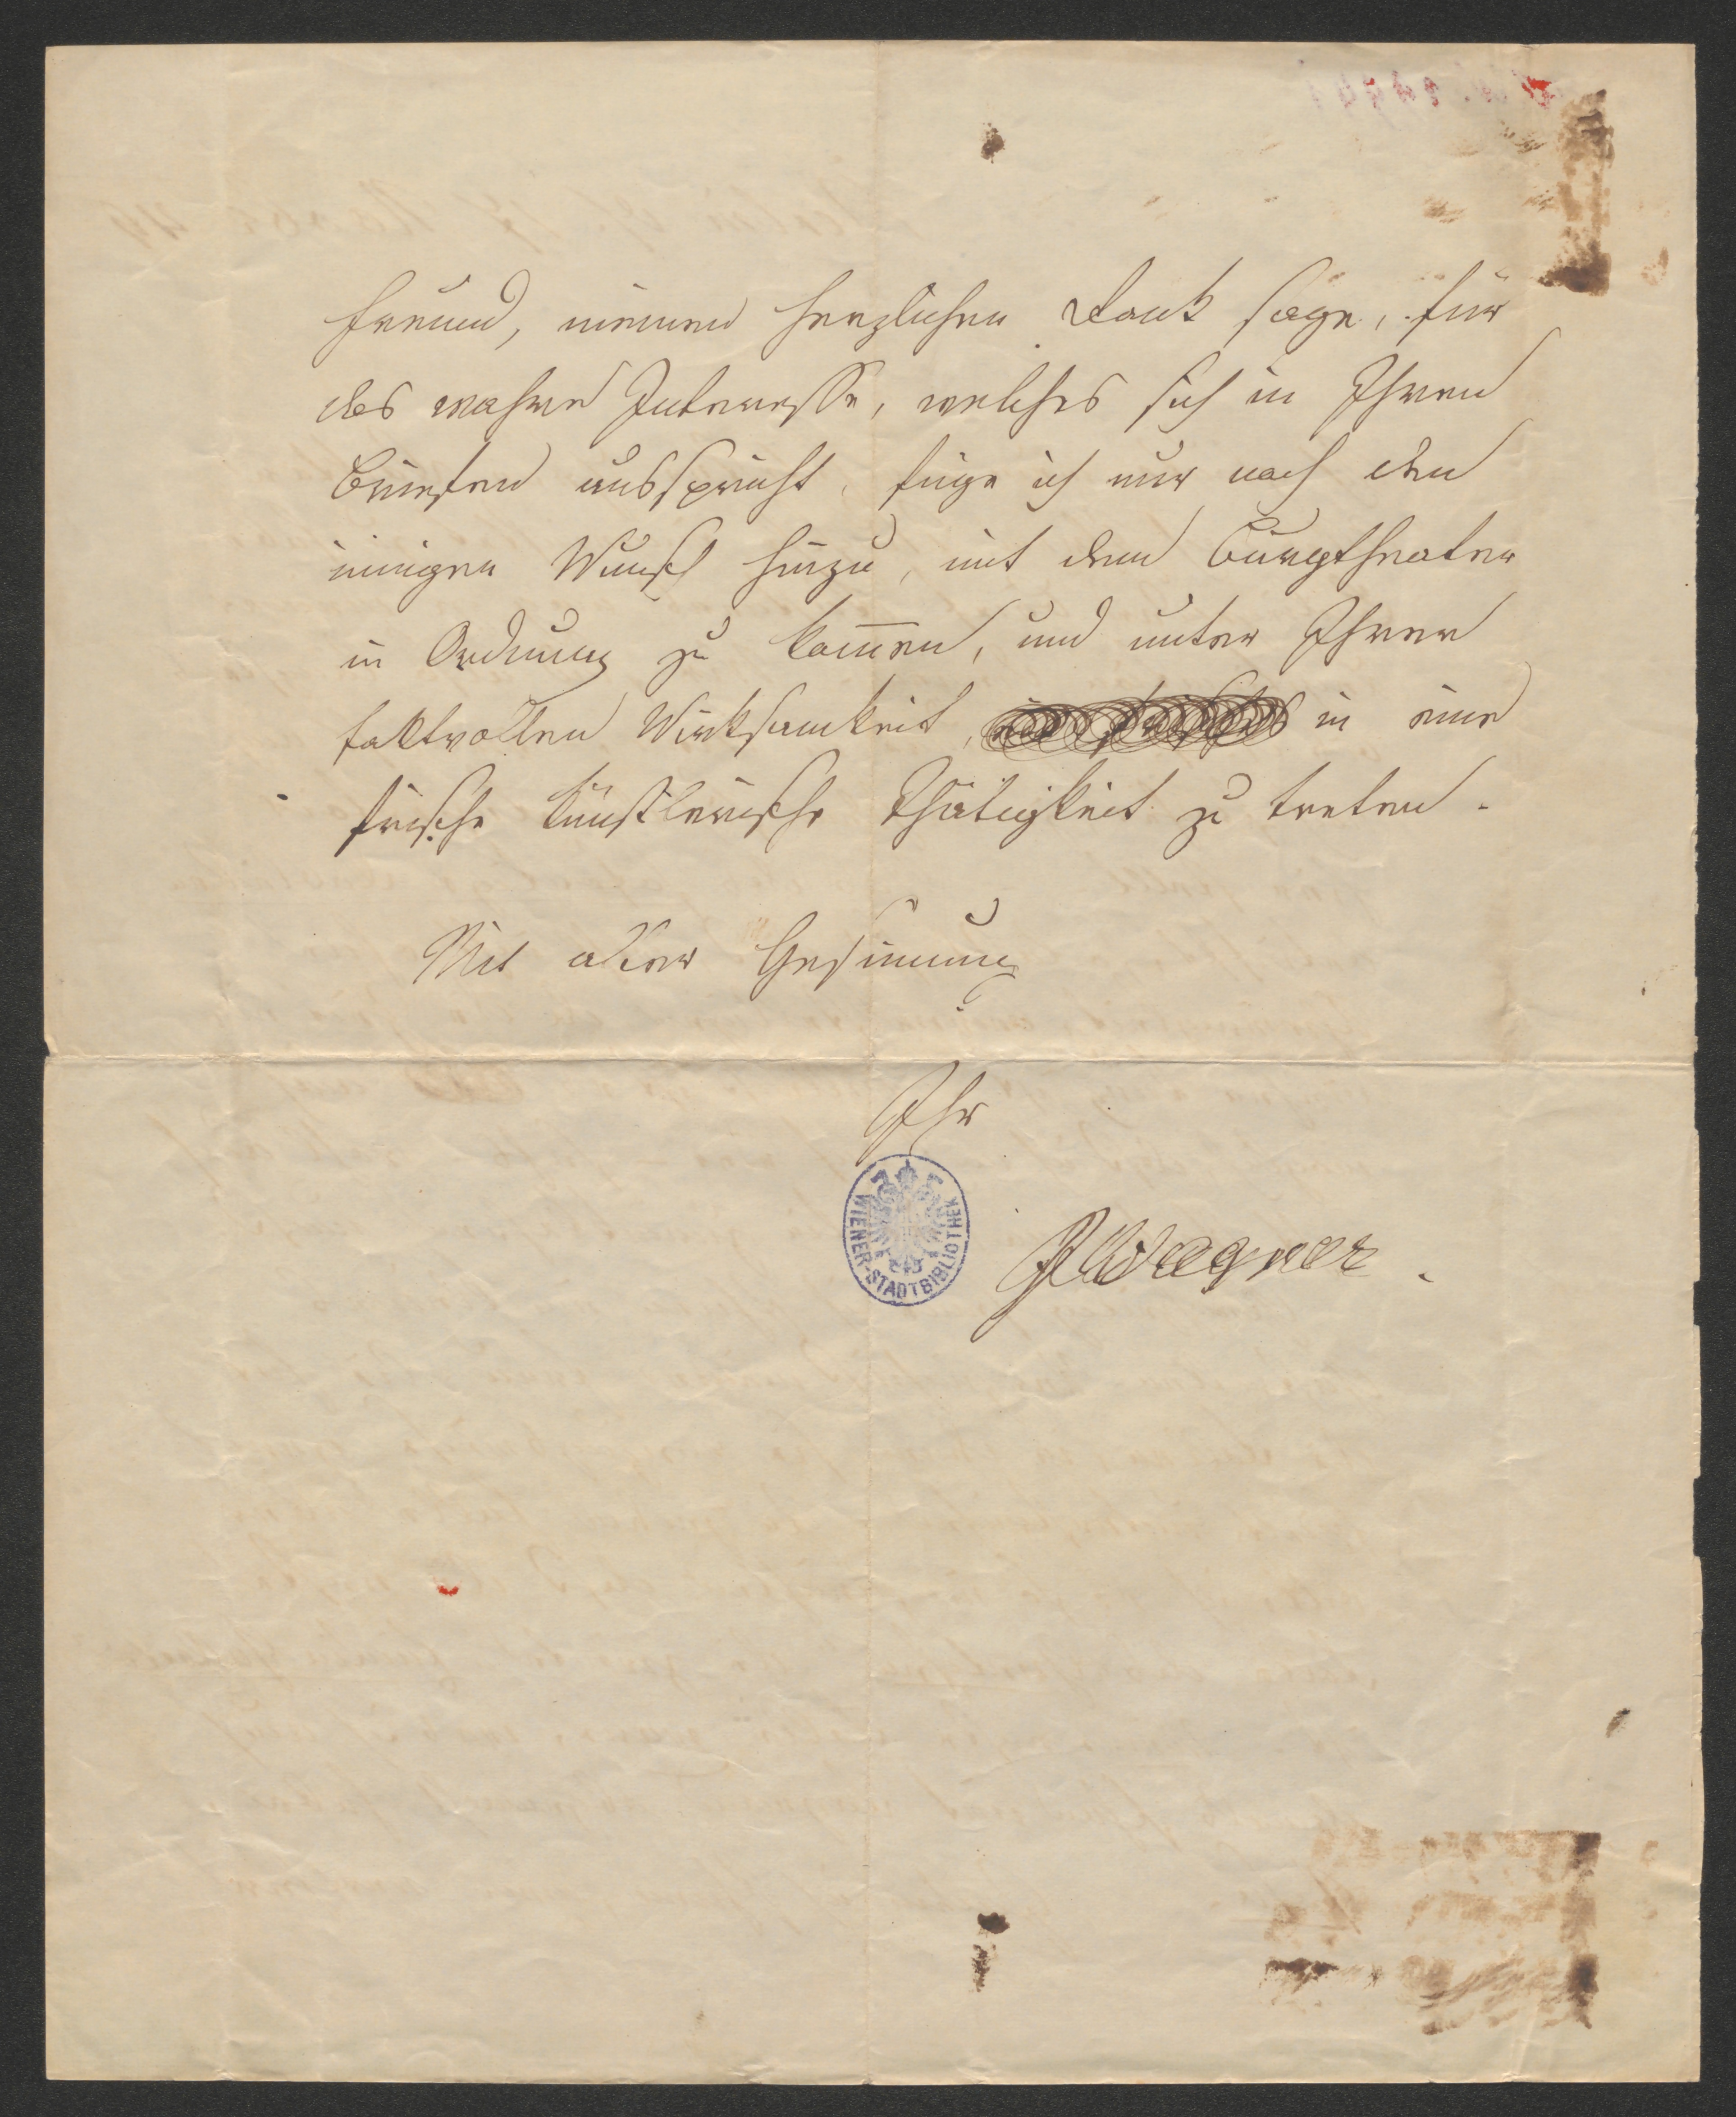 Freund, meinen herzlichen Dank sage, für
das wahre Interesse, welches sich in Ihren
Briefen ausspricht, füge ich nur noch den
innigen Wunsch hinzu, mit dem Burgtheater
in Ordnung zu kom̅en, und unter Ihrer
taktvollen Wirksamkeit, in eine
frische künstlerische Thätigkeit zu treten.
Mit alter Gesinnung
Ihr
WIENER-STADTBIBLIOTHEK
JWagner.